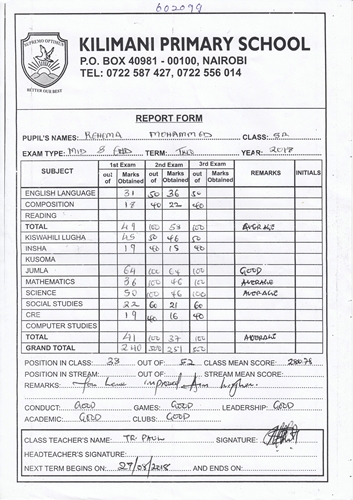 602079
KILIMANI PRIMARY SCHOOL
P.O. BOX 40981 - 00100, NAIROBI
TEL: 0722 587 427, 0722 556 014
SUPREMO OPTIMUS
BETTER OUR BEST
REPORT FORM
PUPIL'S NAMES: REHEMA MOHAMMED CLASS: 5A
EXAM TYPE: MID & END TERM: TWO YEAR: 2018
SUBJECT 1st Exam 2nd Exam 3rd Exam REMARKS INITIALS
out of Marks Obtained out of Marks Obtained out of Marks Obtained
ENGLISH LANGUAGE 31 50 36 50
COMPOSITION 18 40 22 40
READING
TOTAL 49 100 58 100 AVERAGE
KISWAHILI LUGHA 45 50 46 50
INSHA 19 40 18 40
KUSOMA
JUMLA 64 100 64 100 GOOD
MATHEMATICS 36 100 46 100 AVERAGE
SCIENCE 50 100 46 100 AVERAGE
SOCIAL STUDIES 22 60 21 60
CRE 19 40 16 40
COMPUTER STUDIES
TOTAL 41 100 37 100 AVERAGE
GRAND TOTAL 240 500 251 500
POSITION IN CLASS: 33 OUT OF: 52 CLASS MEAN SCORE: 280.78
POSITION IN STREAM: OUT OF: STREAM MEAN SCORE:
REMARKS: You have improved. Aim higher.
CONDUCT: GOOD GAMES: GOOD LEADERSHIP: GOOD
ACADEMIC: GOOD CLUBS: GOOD
CLASS TEACHER'S NAME: TR. PAUL SIGNATURE:
HEADTEACHER'S SIGNATURE:
NEXT TERM BEGINS ON: 27/08/2018 AND ENDS ON: